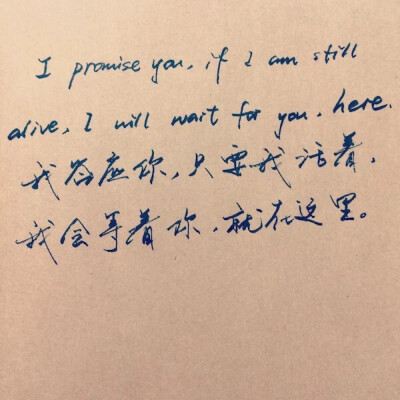 I promise you, if I am still
alive, I will wait for you, here.
我答应你，只要我活着，
我会等着你，就在这里。